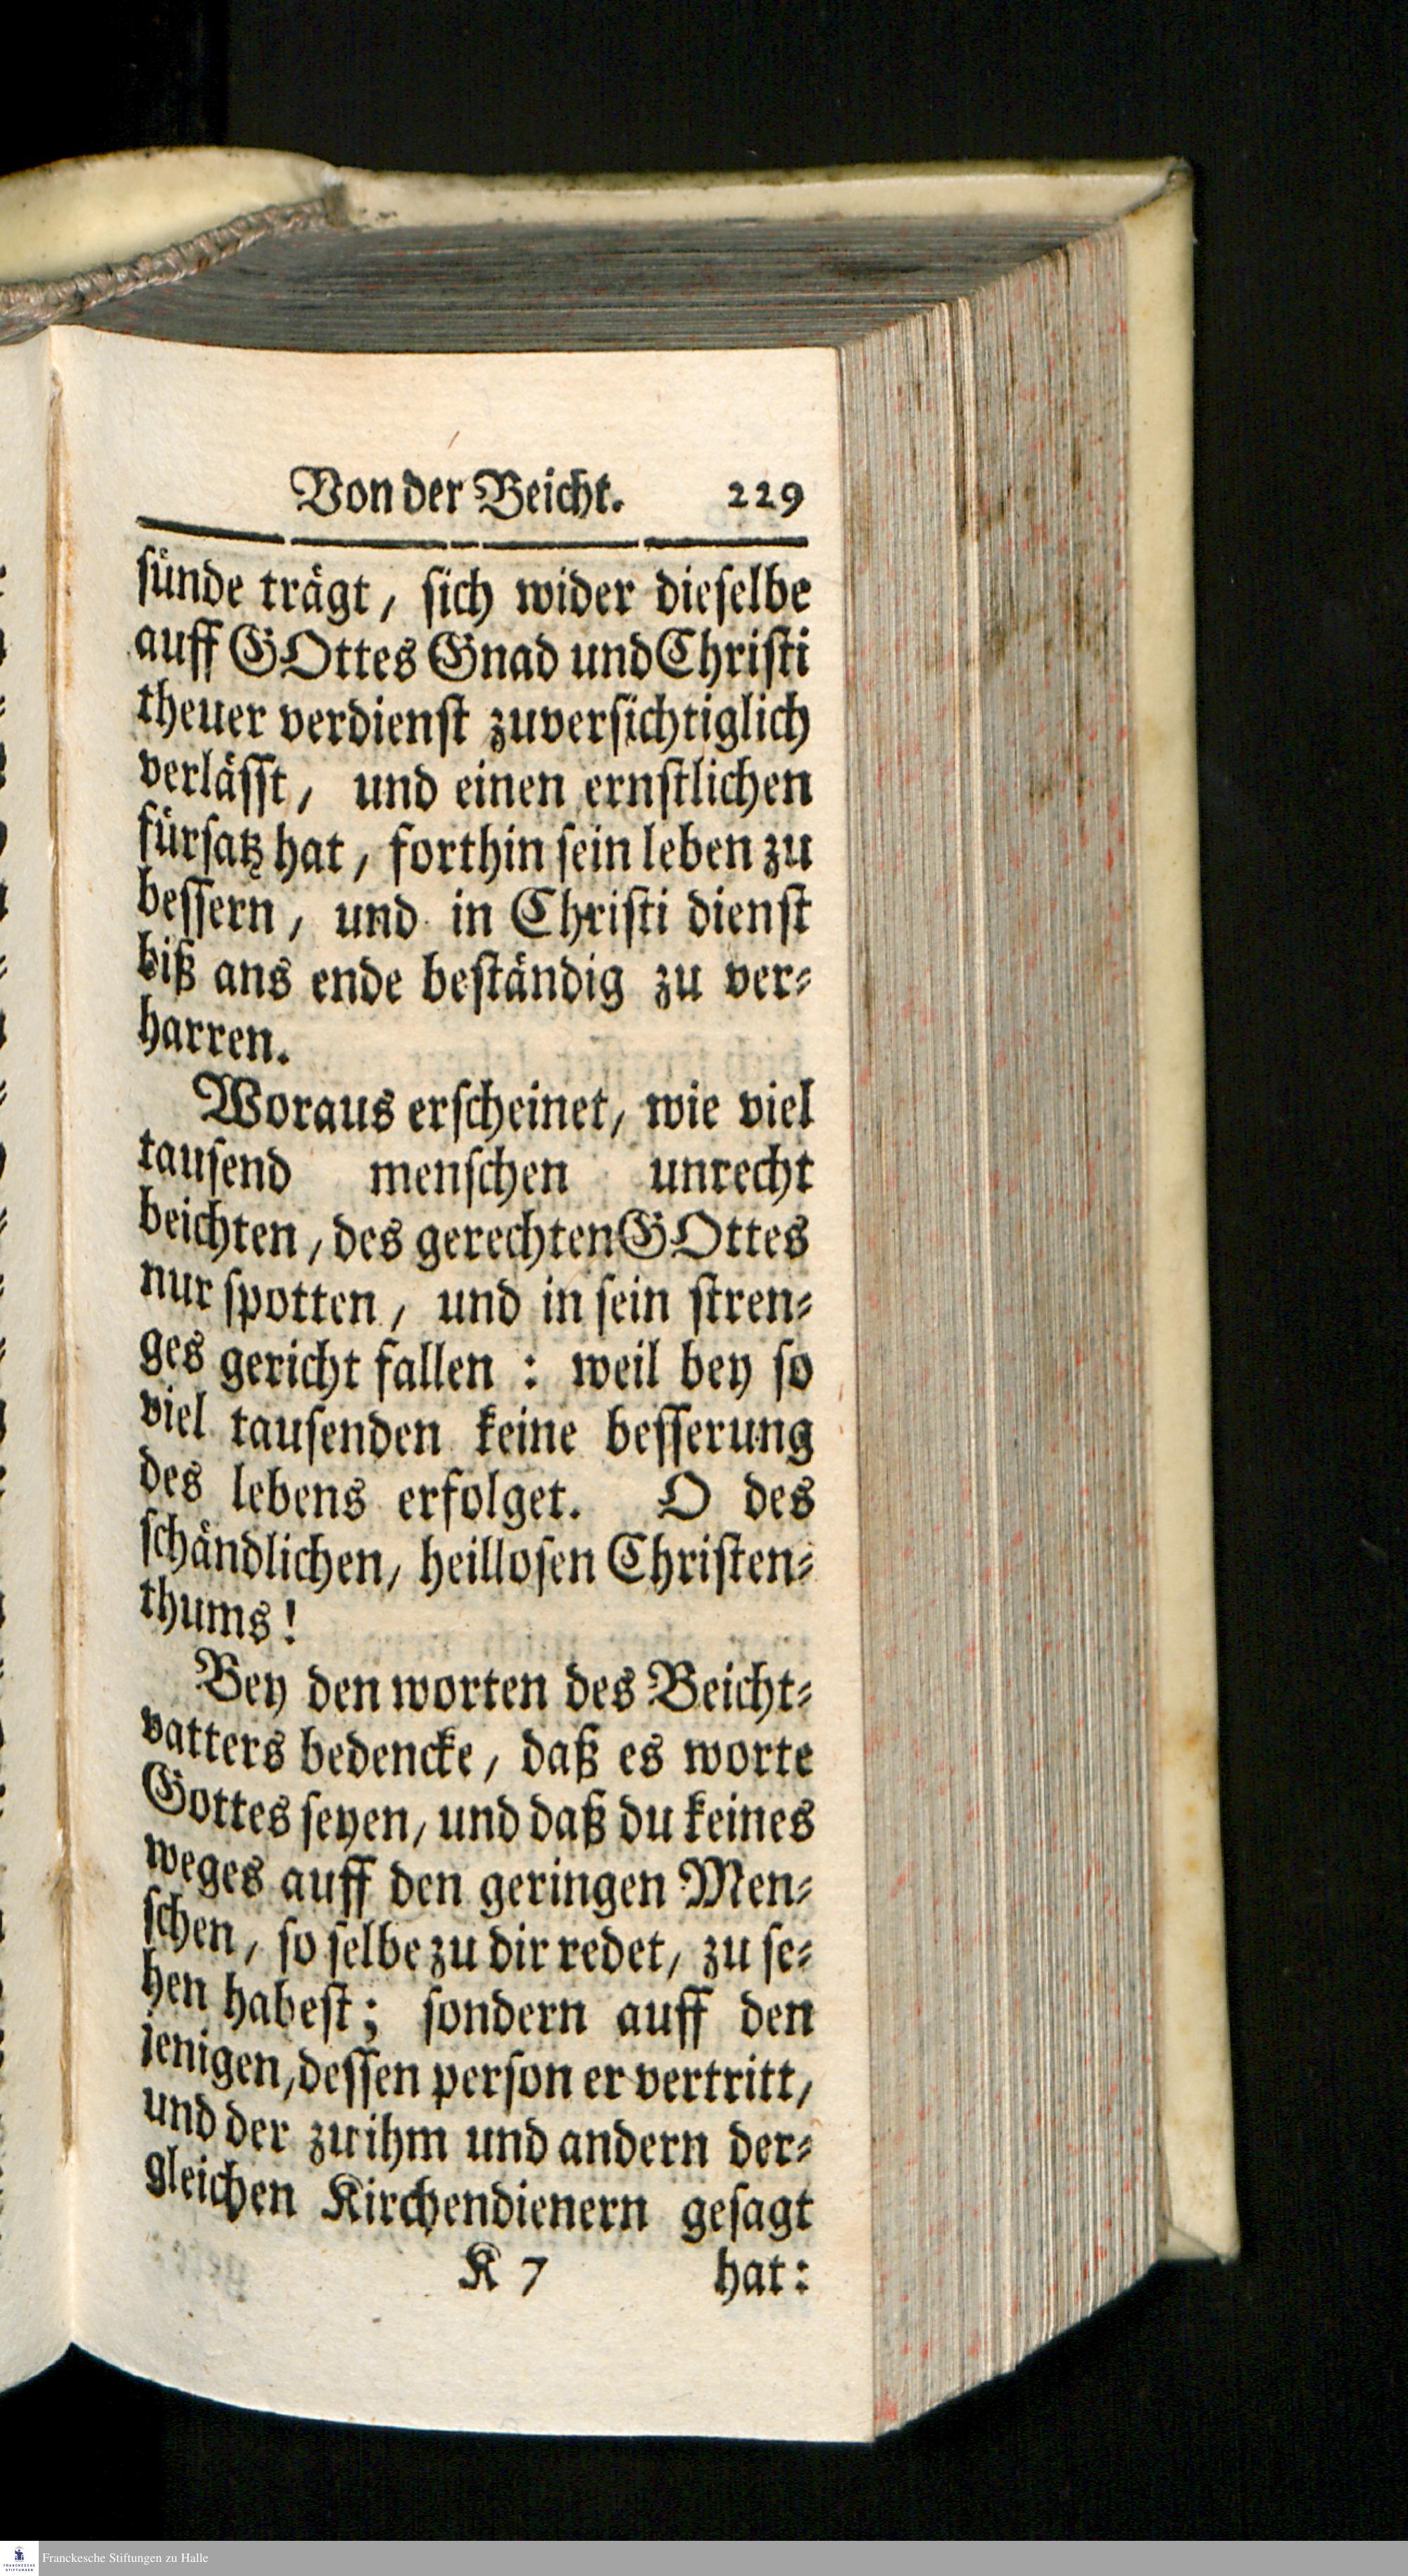 Von der Beicht. 229
sünde trägt, sich wider dieselbe
auff GOttes Gnad und Christi
theuer verdienst zuversichtiglich
verlässt, und einen ernstlichen
fürsatz hat, forthin sein leben zu
bessern, und in Christi dienst
biß ans ende beständig zu ver-
harren.
Woraus erscheinet, wie viel
tausend menschen unrecht
beichten, des gerechten GOttes
nur spotten, und in sein stren-
ges gericht fallen : weil bey so
viel tausenden keine besserung
des lebens erfolget. O des
schändlichen, heillosen Christen-
thums!
Bey den worten des Beicht-
vatters bedencke, daß es worte
Gottes seyen, und daß du keines
weges auff den geringen Men-
schen, so selbe zu dir redet, zu se-
hen habest; sondern auff den
jenigen, dessen person er vertritt,
und der zu ihm und andern der-
gleichen Kirchendienern gesagt
K 7 hat:
Franckesche Stiftungen zu Halle